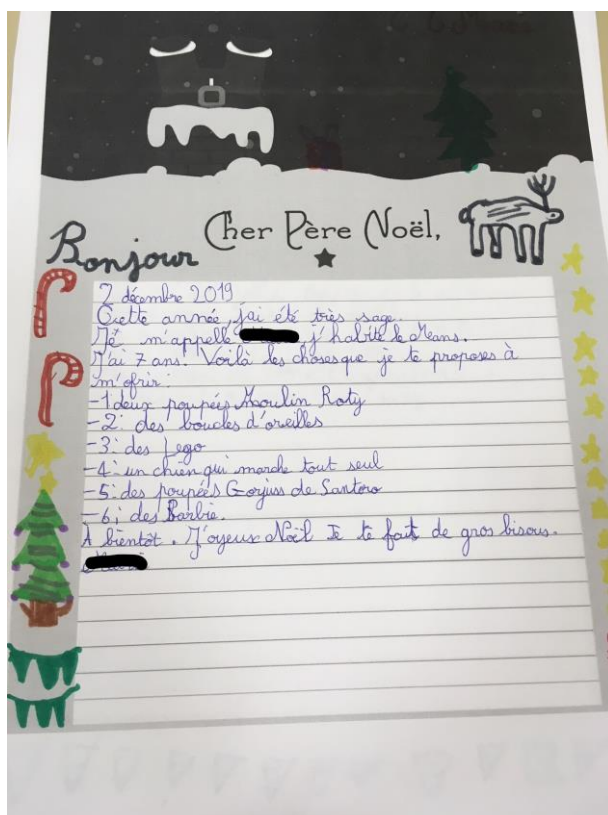 Cher Père Noël,
Bonjour
2 décembre 2019
Cette année, j'ai été très sage.
Jé m'appelle j'habite le Mans.
J'ai 7 ans. Voilà les choses que je te proposes à
m'ofrir :
-1 deux poupées Moulin Roty
-2: des boucles d'oreilles
-3: des Lego
-4: un chien qui marche tout seul
-5: des poupées Gorjuss de Santoro
-6: des Barbie.
A bientôt. J'oyeux Noël Je te fait de gros bisous.